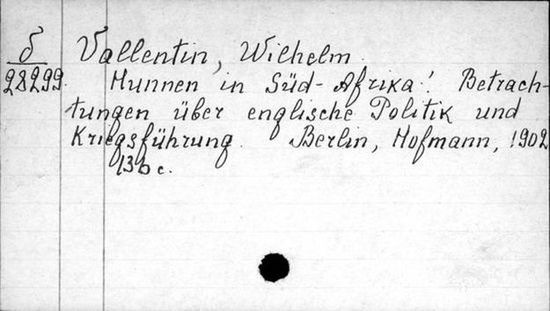 δ Vallentin, Wilhelm.
28299. Hunnen in Süd-Afrika! Betrach-
tungen über englische Politik und
Kriegsführung. Berlin, Hofmann, 1902
13b c.